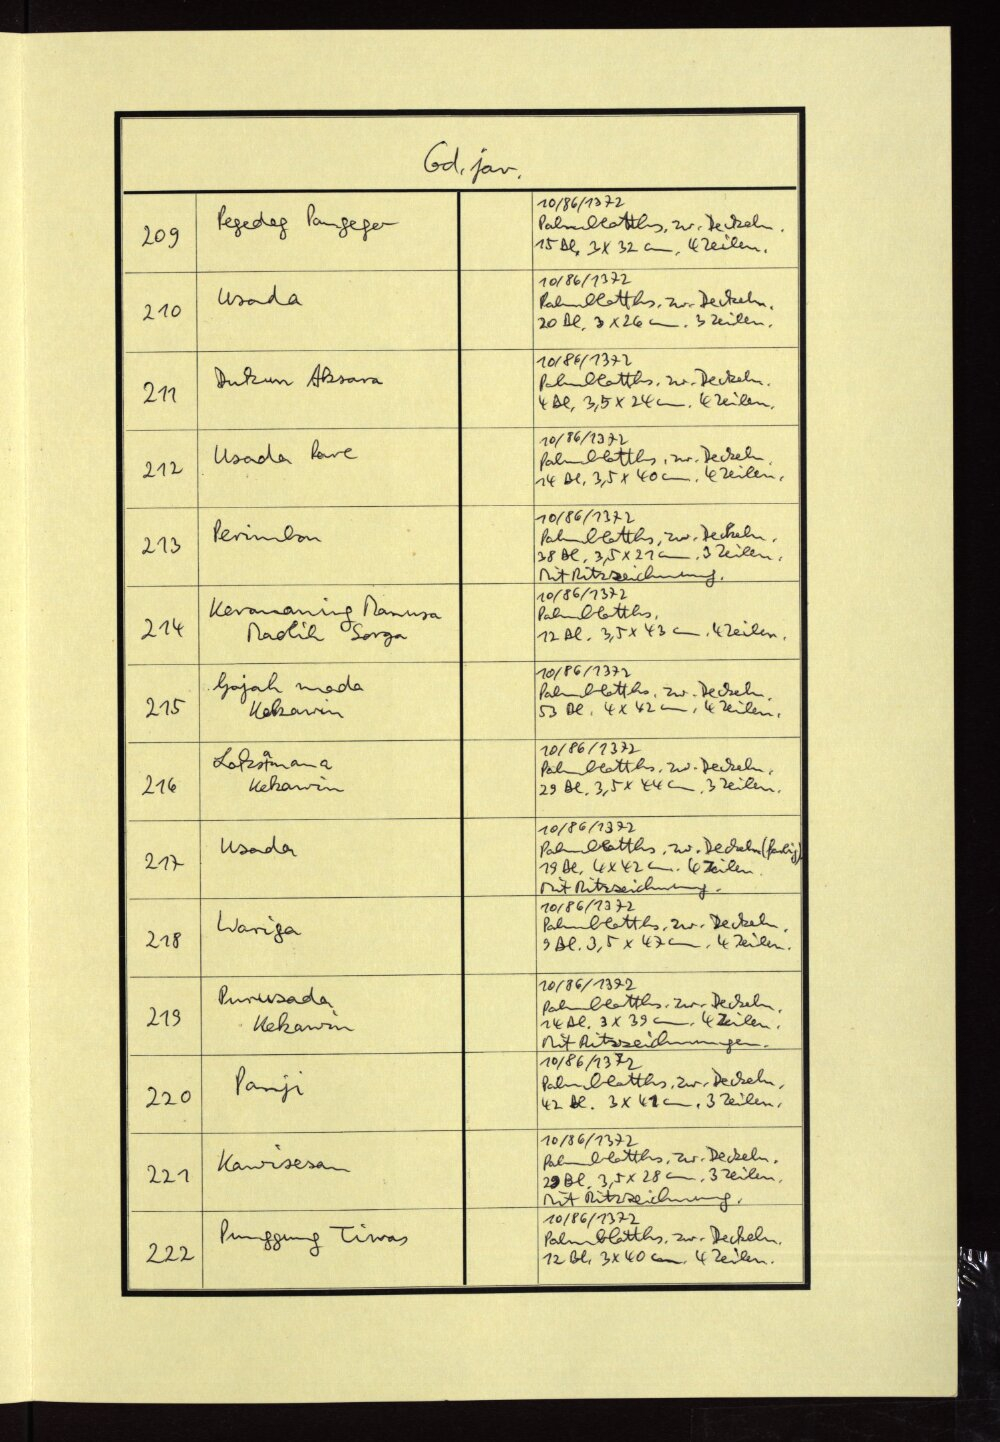 Cod. jav.
209
Pegedeg Pangeger
10/86/1372
Palmblatths. zw. Deckeln.
15 Bl. 3 x 32 cm. 4 Zeilen.
210
Usada
10/86/1372
Palmblatths. zw. Deckeln.
20 Bl. 3 x 26 cm. 3 Zeilen.
211
Dukun Aksara
10/86/1372
Palmblatths. zw. Deckeln.
4 Bl. 3,5 x 24 cm. 4 Zeilen.
212
Usada Rare
10/86/1372
Palmblatths. zw. Deckeln.
14 Bl. 3,5 x 40 cm. 4 Zeilen.
213
Perimbon
10/86/1372
Palmblatths. zw. Deckeln.
38 Bl. 3,5 x 21 cm. 3 Zeilen.
Mit Ritzzeichnung.
214
Keramaning Manusa
Madlih Sorga
10/86/1372
Palmblatths.
12 Bl. 3,5 x 43 cm. 4 Zeilen.
215
Gajah mada
Kekawin
10/86/1372
Palmblatths. zw. Deckeln.
53 Bl. 4 x 42 cm. 4 Zeilen.
216
Laksamana
Kekawin
10/86/1372
Palmblatths. zw. Deckeln.
29 Bl. 3,5 x 44 cm. 3 Zeilen.
217
Usada
10/86/1372
Palmblatths. zw. Deckeln (farbig)
19 Bl. 4 x 42 cm. 4 Zeilen.
Mit Ritzzeichnung.
218
Wariga
10/86/1372
Palmblatths. zw. Deckeln.
9 Bl. 3,5 x 47 cm. 4 Zeilen.
219
Purusada
Kekawin
10/86/1372
Palmblatths. zw. Deckeln.
14 Bl. 3 x 39 cm. 4 Zeilen.
Mit Ritzzeichnungen.
220
Panji
10/86/1372
Palmblatths. zw. Deckeln.
42 Bl. 3 x 41 cm. 3 Zeilen.
221
Kawisesan
10/86/1372
Palmblatths. zw. Deckeln.
29 Bl. 3,5 x 28 cm. 3 Zeilen.
Mit Ritzzeichnung.
222
Punggung Tiwas
10/86/1372
Palmblatths. zw. Deckeln.
12 Bl. 3 x 40 cm. 4 Zeilen.